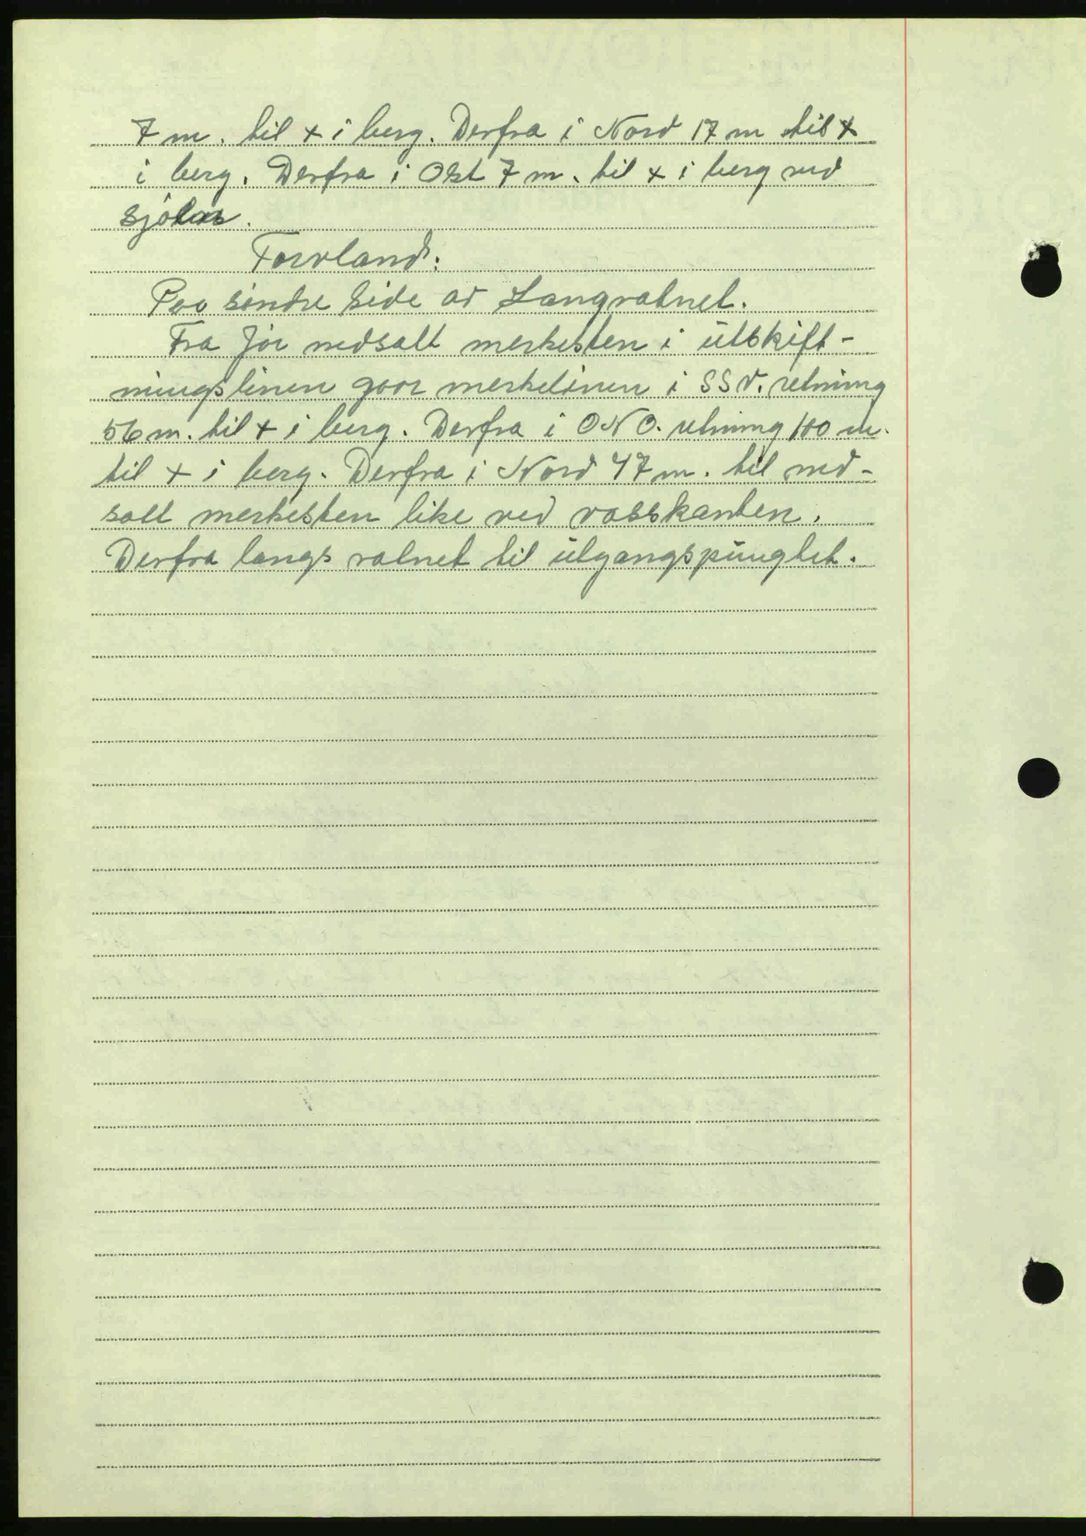 7 m. til + i berg. Derfra i Nord 17 m til +
i berg. Derfra i Ost 7 m. til + i berg ved
sjöen.
Torvland:
Paa söndre side av Langvatnet.
Fra før nedsatt merkesten i utskift-
ningslinen gaar merkelinen i SSV. retning
56 m. til + i berg. Derfra i ONO. retning 100 m.
til + i berg. Derfra i Nord 47 m. til ned-
satt merkesten like ved vasskanten.
Derfra langs vatnet til utgangspungtet.